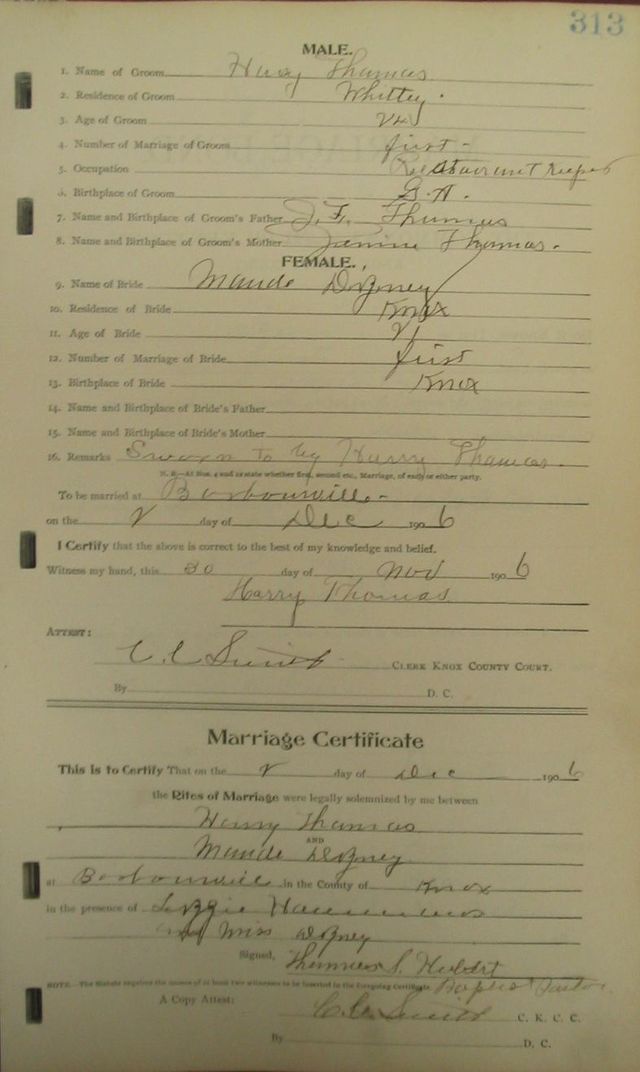 313
MALE.
1. Name of Groom Harry Thomas
2. Residence of Groom Whitley.
3. Age of Groom 24
4. Number of Marriage of Groom first -
5. Occupation Restaurant Keeper
6. Birthplace of Groom G.A.
7. Name and Birthplace of Groom's Father J. F. Thomas
8. Name and Birthplace of Groom's Mother Jennie Thomas.
FEMALE.
9. Name of Bride Maude Dozney
10. Residence of Bride Knox
11. Age of Bride 21
12. Number of Marriage of Bride first
13. Birthplace of Bride Knox
14. Name and Birthplace of Bride's Father
15. Name and Birthplace of Bride's Mother
16. Remarks Sworn to by Harry Thomas.
N. B.—At Nos. 4 and 12 state whether first, second etc., Marriage, of each or either party.
To be married at Barbourville -
on the 2 day of Dec 1906
I Certify that the above is correct to the best of my knowledge and belief.
Witness my hand, this 30 day of Nov 1906
Harry Thomas
ATTEST:
C. C. Smith CLERK KNOX COUNTY COURT.
By D. C.
Marriage Certificate
This is to Certify That on the 2 day of Dec 1906
the Rites of Marriage were legally solemnized by me between
Harry Thomas
AND
Maude Dozney
at Barbourville in the County of Knox
in the presence of Lizzie
and Miss Dozney
Signed, Thomas S. Hubert
NOTE.—The Statute requires the names of at least two witnesses to be inserted in the foregoing Certificate. Baptist Pastor.
A Copy Attest: C. C. Smith C. K. C. C.
By D. C.